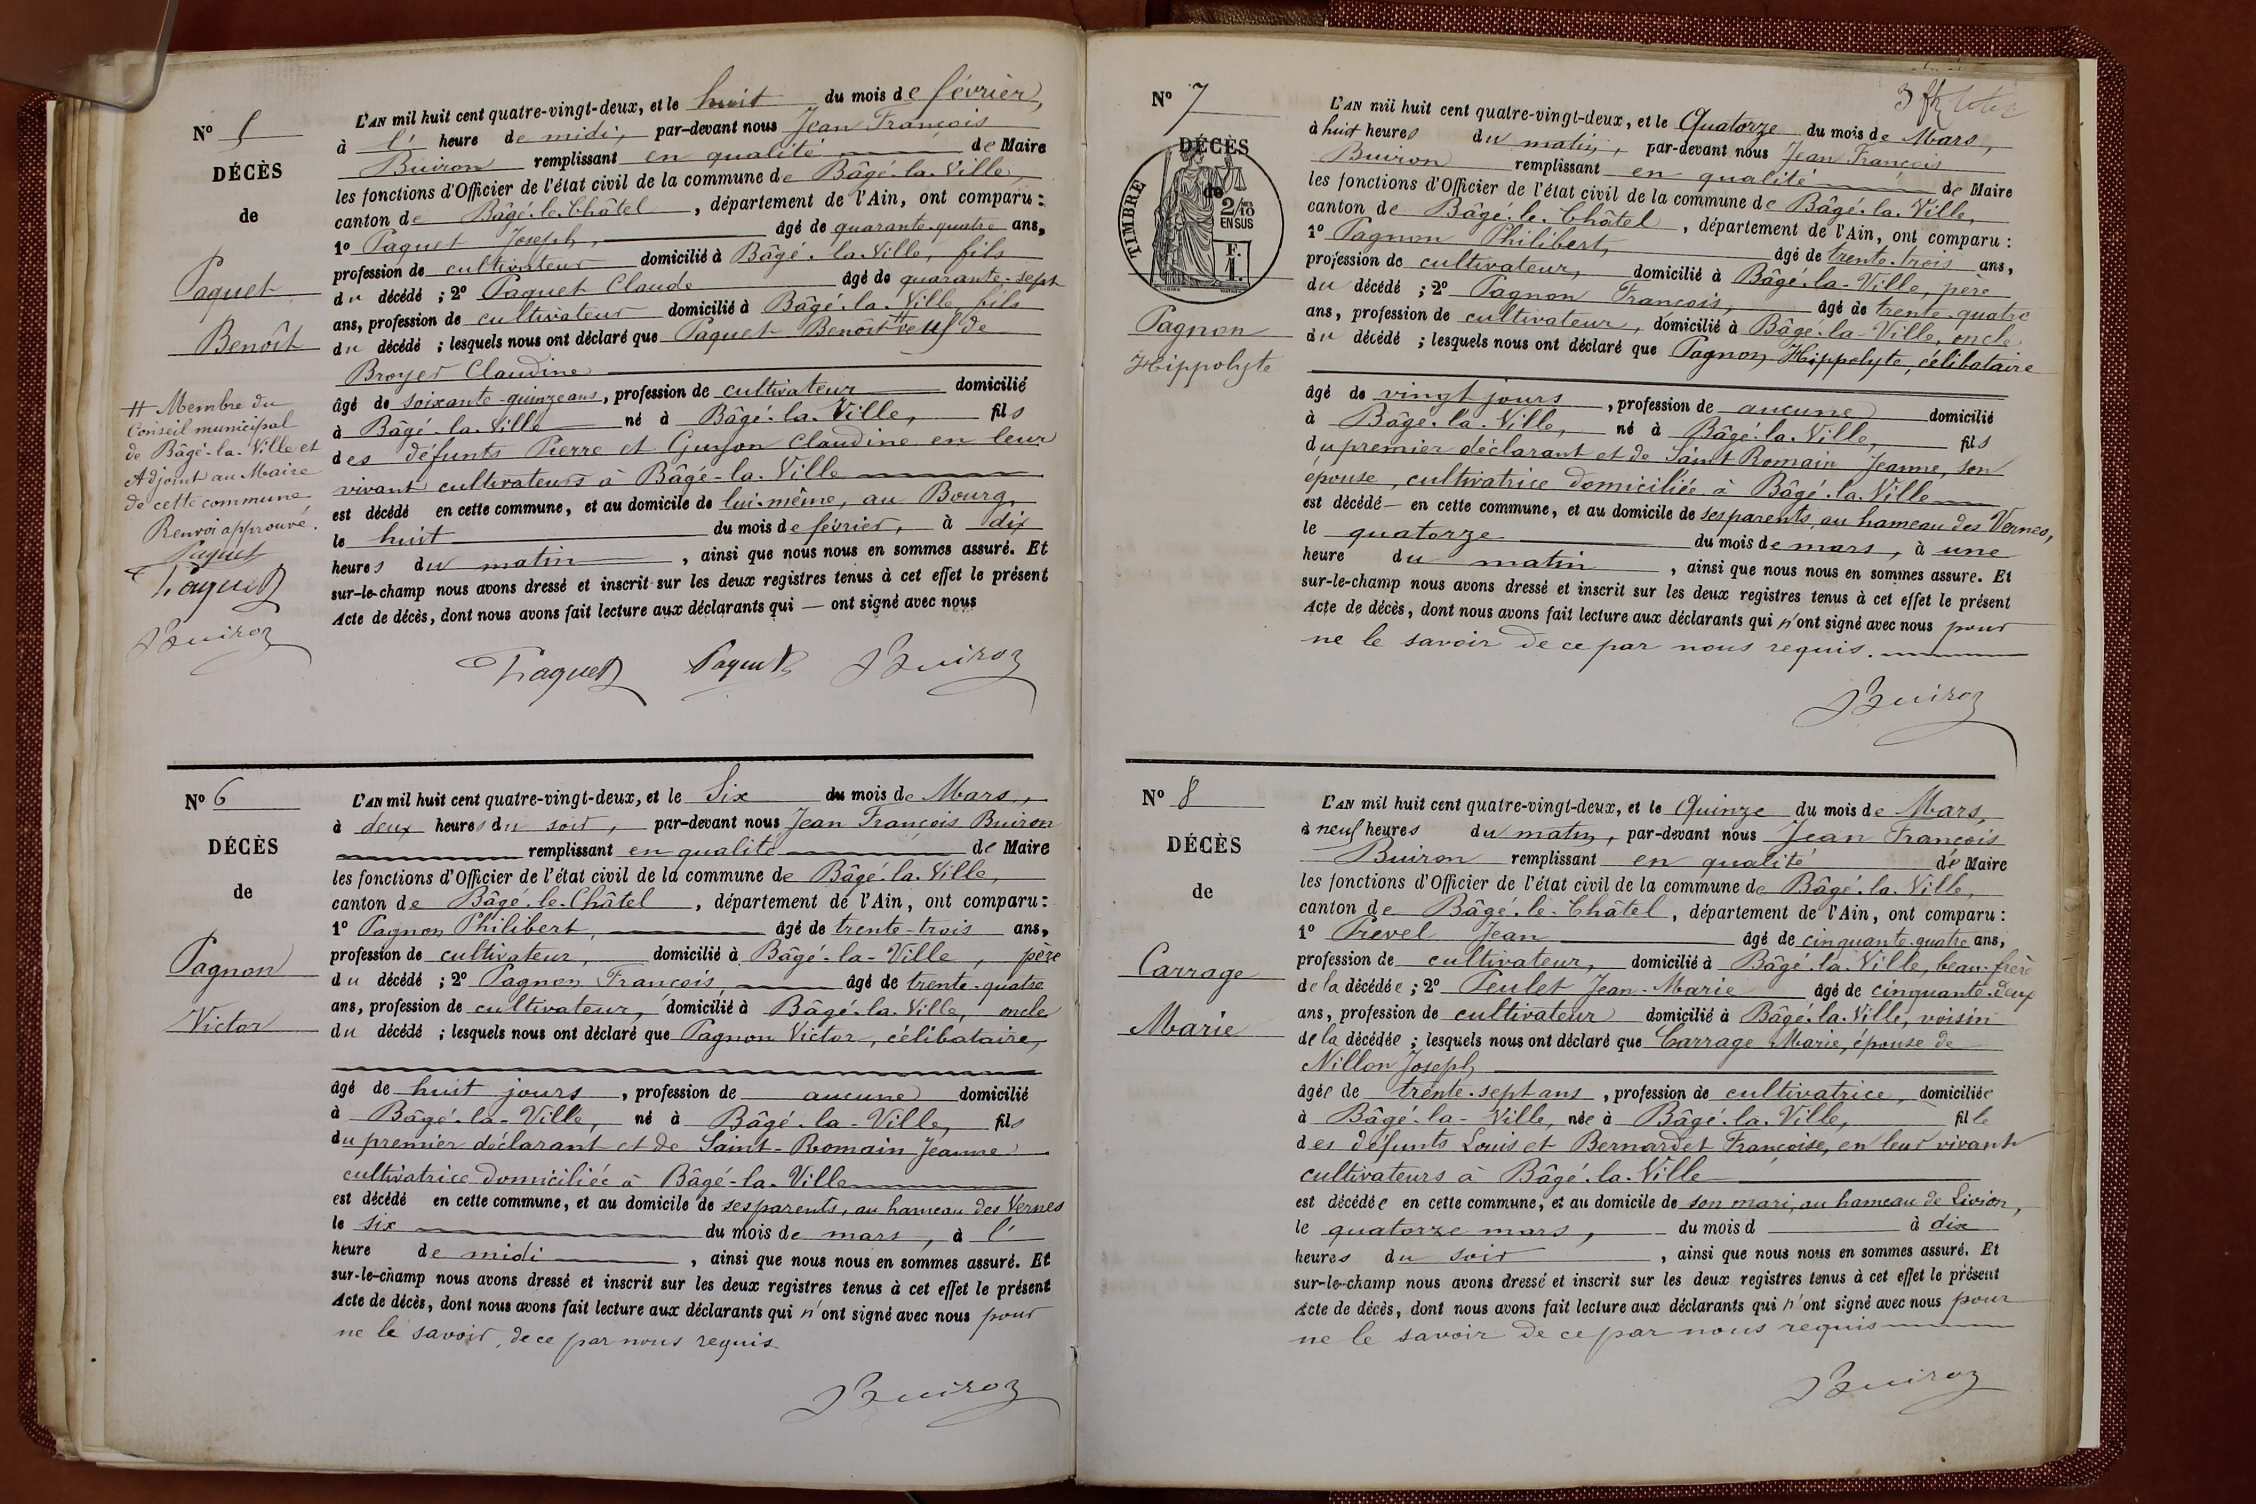 N° 5
DÉCÈS
de
Paquet
Benoît
# Membre du
Conseil municipal
de Bâgé-la-Ville et
Adjoint au Maire
de cette commune
Renvoi approuvé.
Paquet
Paquet
Buiron
L'AN mil huit cent quatre-vingt-deux, et le huit du mois de février,
à l' heure de midi, par-devant nous Jean François
Buiron remplissant en qualité de Maire
les fonctions d'Officier de l'état civil de la commune de Bâgé-la-Ville,
canton de Bâgé-le-Châtel, département de l'Ain, ont comparu :
1° Paquet Joseph, âgé de quarante-quatre ans,
profession de cultivateur domicilié à Bâgé-la-Ville, fils
du décédé ; 2° Paquet Claude âgé de quarante-sept
ans, profession de cultivateur domicilié à Bâgé-la-Ville fils
du décédé ; lesquels nous ont déclaré que Paquet Benoît # veuf de
Broyer Claudine
âgé de soixante-quinze ans, profession de cultivateur domicilié
à Bâgé-la-Ville né à Bâgé-la-Ville, fils
des défunts Pierre et Guyon Claudine en leur
vivant cultivateurs à Bâgé-la-Ville
est décédé en cette commune, et au domicile de lui-même, au Bourg,
le huit du mois de février, à dix
heures du matin, ainsi que nous nous en sommes assuré. Et
sur-le-champ nous avons dressé et inscrit sur les deux registres tenus à cet effet le présent
Acte de décès, dont nous avons fait lecture aux déclarants qui — ont signé avec nous
Paquet Paquet Buiron
N° 6
DÉCÈS
de
Pagnon
Victor
L'AN mil huit cent quatre-vingt-deux, et le Six du mois de Mars,
à deux heures du soir, par-devant nous Jean François Buiron
remplissant en qualité de Maire
les fonctions d'Officier de l'état civil de la commune de Bâgé-la-Ville,
canton de Bâgé-le-Châtel, département de l'Ain, ont comparu :
1° Pagnon Philibert, âgé de trente-trois ans,
profession de cultivateur, domicilié à Bâgé-la-Ville, père
du décédé ; 2° Pagnon François, âgé de trente-quatre
ans, profession de cultivateur, domicilié à Bâgé-la-Ville, oncle
du décédé ; lesquels nous ont déclaré que Pagnon Victor, célibataire,
âgé de huit jours, profession de aucune domicilié
à Bâgé-la-Ville, né à Bâgé-la-Ville, fils
du premier déclarant et de Saint-Romain Jeanne
cultivatrice domiciliée à Bâgé-la-Ville
est décédé en cette commune, et au domicile de ses parents, au hameau des Vernes
le six du mois de mars, à l'
heure de midi, ainsi que nous nous en sommes assuré. Et
sur-le-champ nous avons dressé et inscrit sur les deux registres tenus à cet effet le présent
Acte de décès, dont nous avons fait lecture aux déclarants qui n'ont signé avec nous pour
ne le savoir, de ce par nous requis
Buiron
N° 7
DÉCÈS
de
TIMBRE
2/10
EN SUS
1 F.
Pagnon
Hippolyte
L'AN mil huit cent quatre-vingt-deux, et le Quatorze du mois de Mars,
à huit heures du matin, par-devant nous Jean François
Buiron remplissant en qualité de Maire
les fonctions d'Officier de l'état civil de la commune de Bâgé-la-Ville,
canton de Bâgé-le-Châtel, département de l'Ain, ont comparu :
1° Pagnon Philibert, âgé de trente-trois ans,
profession de cultivateur, domicilié à Bâgé-la-Ville, père
du décédé ; 2° Pagnon François, âgé de trente-quatre
ans, profession de cultivateur, domicilié à Bâgé-la-Ville, oncle
du décédé ; lesquels nous ont déclaré que Pagnon Hippolyte, célibataire
âgé de vingt jours, profession de aucune domicilié
à Bâgé-la-Ville, né à Bâgé-la-Ville, fils
du premier déclarant et de Saint Romain Jeanne, son
épouse, cultivatrice domiciliée à Bâgé-la-Ville
est décédé — en cette commune, et au domicile de ses parents, au hameau des Vernes,
le quatorze du mois de mars, à une
heure du matin, ainsi que nous nous en sommes assuré. Et
sur-le-champ nous avons dressé et inscrit sur les deux registres tenus à cet effet le présent
Acte de décès, dont nous avons fait lecture aux déclarants qui n'ont signé avec nous pour
ne le savoir de ce par nous requis.
Buiron
N° 8
DÉCÈS
de
Carrage
Marie
L'AN mil huit cent quatre-vingt-deux, et le Quinze du mois de Mars,
à neuf heures du matin, par-devant nous Jean François
Buiron remplissant en qualité de Maire
les fonctions d'Officier de l'état civil de la commune de Bâgé-la-Ville,
canton de Bâgé-le-Châtel, département de l'Ain, ont comparu :
1° Prevel Jean âgé de cinquante-quatre ans,
profession de cultivateur, domicilié à Bâgé-la-Ville, beau-frère
de la décédée ; 2° Peulet Jean-Marie âgé de cinquante-deux
ans, profession de cultivateur domicilié à Bâgé-la-Ville, voisin
de la décédée ; lesquels nous ont déclaré que Carrage Marie, épouse de
Nillon Joseph
âgée de trente-sept ans, profession de cultivatrice, domiciliée
à Bâgé-la-Ville, née à Bâgé-la-Ville, fille
des défunts Louis et Bernardet Françoise, en leur vivant
cultivateurs à Bâgé-la-Ville
est décédée en cette commune, et au domicile de son mari, au hameau de Livion,
le quatorze mars, du mois d à dix
heures du soir, ainsi que nous nous en sommes assuré. Et
sur-le-champ nous avons dressé et inscrit sur les deux registres tenus à cet effet le présent
Acte de décès, dont nous avons fait lecture aux déclarants qui n'ont signé avec nous pour
ne le savoir de ce par nous requis
Buiron